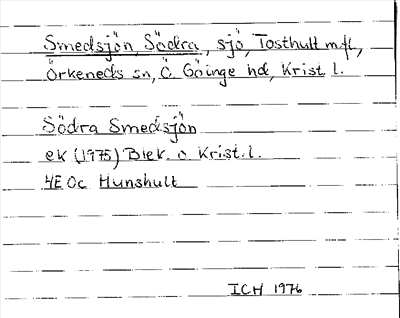 Smedsjön, Södra, sjö, Tosthult m fl,
Örkeneds sn, Ö. Göinge hd, Krist l.
Södra Smedsjön
ek (1975) Blek. o Krist. l.
4E Oc Hunshult
ICH 1976